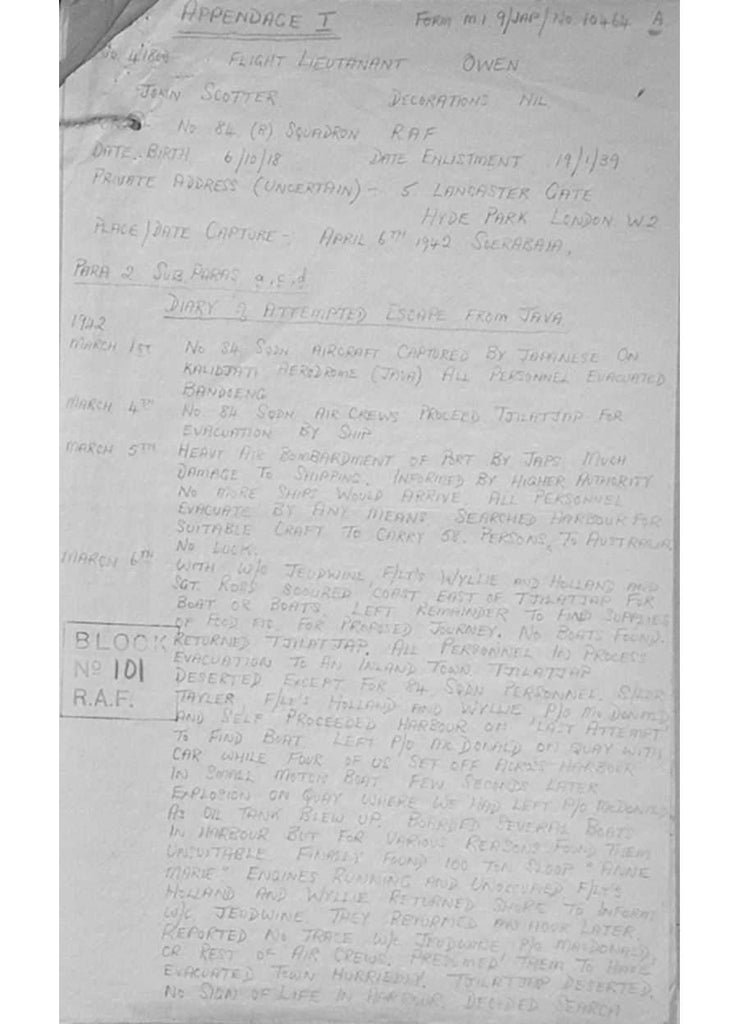 APPENDAGE I FORM M.I 9/JAP/No 10464 A
No. FLIGHT LIEUTANANT OWEN
JOHN SCOTTER DECORATIONS NIL
No 84 (B) SQUADRON RAF
DATE BIRTH 6/10/18 DATE ENLISTMENT 19/1/39
PRIVATE ADDRESS (UNCERTAIN) - 5 LANCASTER GATE
HYDE PARK LONDON W2
PLACE/DATE CAPTURE - APRIL 6TH 1942 SOERABAIA,
PARA 2 SUB PARAS a,c,d
DIARY OF ATTEMPTED ESCAPE FROM JAVA
1942
MARCH 1ST No 84 SQDN AIRCRAFT CAPTURED BY JAPANESE ON
KALIDJATI AERODROME (JAVA) ALL PERSONNEL EVACUATED
BANDOENG
MARCH 4TH No. 84 SQDN AIR CREWS PROCEED TJILATJAP FOR
EVACUATION BY SHIP
MARCH 5TH HEAVY AIR BOMBARDMENT OF PORT BY JAPS. MUCH
DAMAGE TO SHIPPING. INFORMED BY HIGHER AUTHORITY
NO MORE SHIPS WOULD ARRIVE. ALL PERSONNEL
EVACUATE BY ANY MEANS. SEARCHED HARBOUR FOR
SUITABLE CRAFT TO CARRY 58. PERSONS, TO AUSTRALIA.
NO LUCK.
MARCH 6TH WITH W/C JEUDWINE, F/LT'S WYLLIE AND HOLLAND AND
SGT. ROSS SCOURED COAST EAST OF TJILATJAP FOR
BOAT OR BOATS. LEFT REMAINDER TO FIND SUPPLIES
OF FOOD ETC. FOR PROPOSED JOURNEY. NO BOATS FOUND.
RETURNED TJILATJAP. ALL PERSONNEL IN PROCESS
EVACUATION TO AN INLAND TOWN. TJILATJAP
DESERTED EXCEPT FOR 84 SQDN PERSONNEL. S/LDR
TAYLER F/LT'S HOLLAND AND WYLLIE, P/O McDONALD
AND SELF PROCEEDED HARBOUR ON 'LAST ATTEMPT'
TO FIND BOAT. LEFT P/O McDONALD ON QUAY WITH
CAR WHILE FOUR OF US SET OFF ACROSS HARBOUR
IN SMALL MOTOR BOAT FEW SECONDS LATER
EXPLOSION ON QUAY WHERE WE HAD LEFT P/O McDONALD
AS OIL TANK BLEW UP. BOARDED SEVERAL BOATS
IN HARBOUR BUT FOR VARIOUS REASONS FOUND THEM
UNSUITABLE FINALLY FOUND 100 TON SLOOP "ANNE
MARIE" ENGINES RUNNING AND F/LT'S
HOLLAND AND WYLLIE RETURNED SHORE TO INFORM
W/C JEUDWINE. THEY RETURNED HOUR LATER.
REPORTED NO TRACE W/C JEUDWINE P/O MACDONALD,
OR REST OF AIR CREWS. PRESUMED THEM TO HAVE
EVACUATED TOWN HURRIEDLY. TJILATJAP DESERTED.
NO SIGN OF LIFE IN HARBOUR. DECIDED SEARCH
BLOCK
No 101
R.A.F.